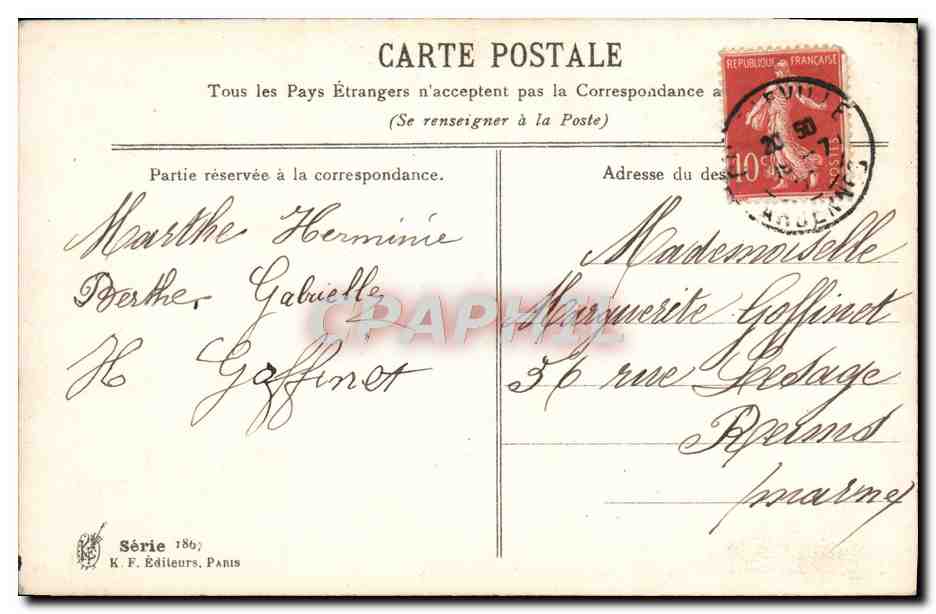 CARTE POSTALE
Tous les Pays Étrangers n'acceptent pas la Correspondance a
(Se renseigner à la Poste)
REPUBLIQUE FRANÇAISE
10c
POSTES
EVILLE
ARDENNES
Partie réservée à la correspondance.
Marthe Herminie
Berthe, Gabrielle
H Goffinet
Adresse du des
Mademoiselle
Marguerite Goffinet
36 rue Lesage
Reims
(marne)
CPAPHIL
Série 1867
K. F. Éditeurs, PARIS